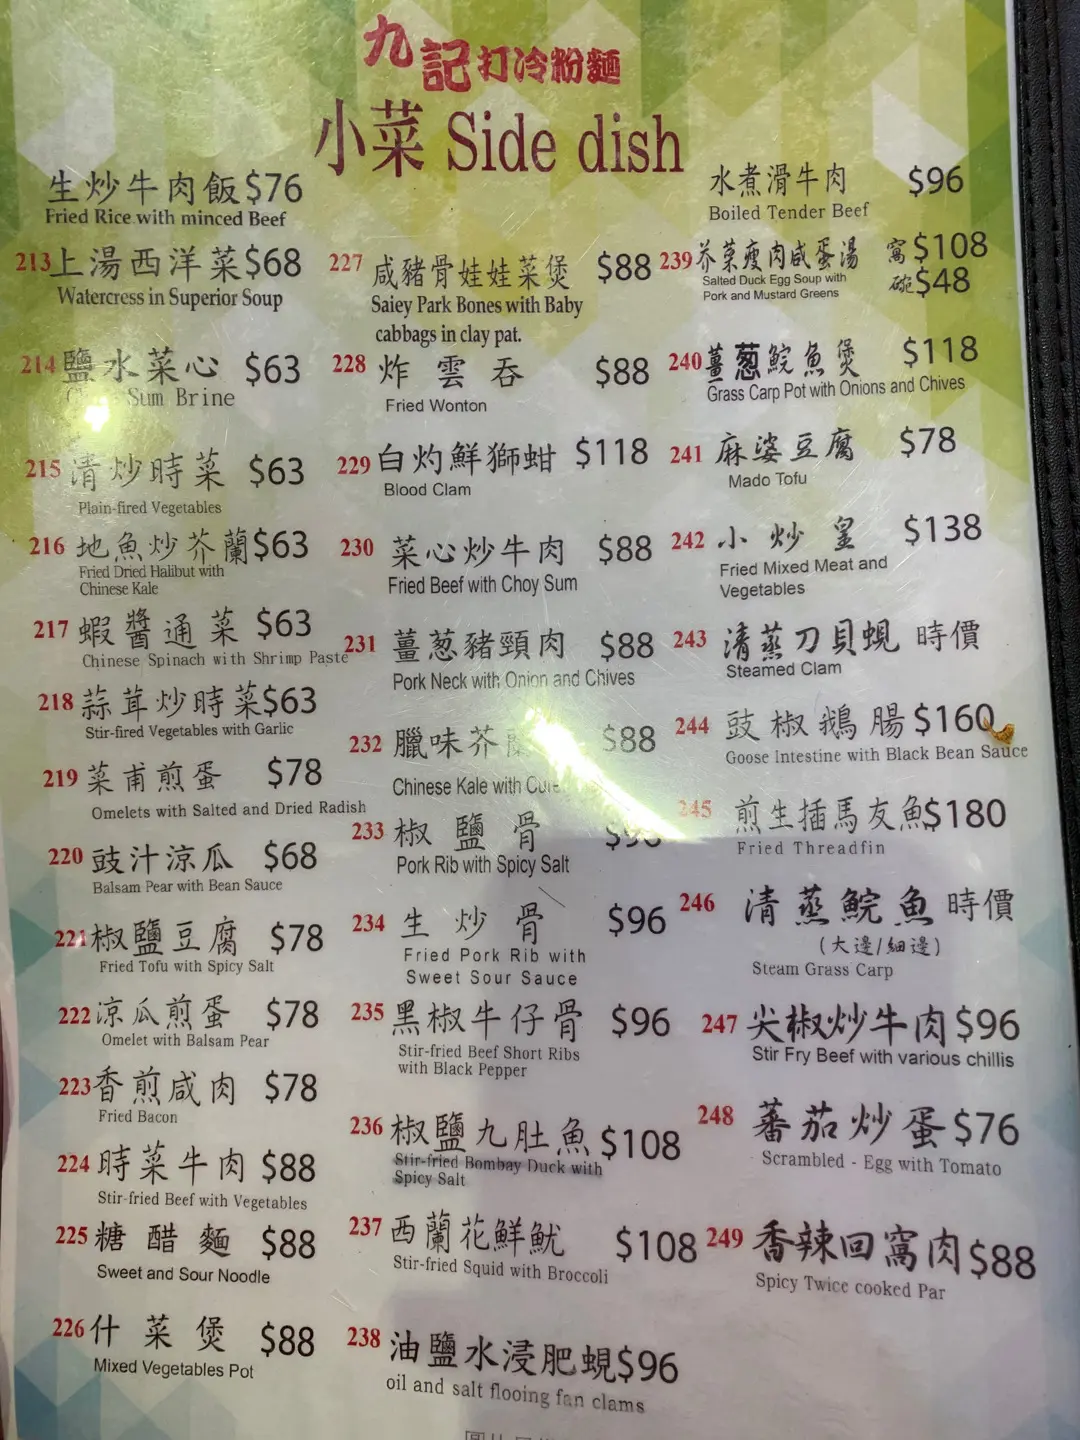 九記打冷粉麵
小菜 Side dish
生炒牛肉飯 $76
Fried Rice with minced Beef
213 上湯西洋菜 $68
Watercress in Superior Soup
214 鹽水菜心 $63
Sum Brine
215 清炒時菜 $63
Plain-fired Vegetables
216 地魚炒芥蘭 $63
Fried Dried Halibut with
Chinese Kale
217 蝦醬通菜 $63
Chinese Spinach with Shrimp Paste
218 蒜茸炒時菜 $63
Stir-fired Vegetables with Garlic
219 菜甫煎蛋 $78
Omelets with Salted and Dried Radish
220 豉汁涼瓜 $68
Balsam Pear with Bean Sauce
221 椒鹽豆腐 $78
Fried Tofu with Spicy Salt
222 涼瓜煎蛋 $78
Omelet with Balsam Pear
223 香煎咸肉 $78
Fried Bacon
224 時菜牛肉 $88
Stir-fried Beef with Vegetables
225 糖醋麵 $88
Sweet and Sour Noodle
226 什菜煲 $88
Mixed Vegetables Pot
227 咸豬骨娃娃菜煲 $88
Saiey Park Bones with Baby
cabbags in clay pat.
228 炸雲吞 $88
Fried Wonton
229 白灼鮮獅蚶 $118
Blood Clam
230 菜心炒牛肉 $88
Fried Beef with Choy Sum
231 薑葱豬頸肉 $88
Pork Neck with Onion and Chives
232 臘味芥 $88
Chinese Kale with
233 椒鹽骨
Pork Rib with Spicy Salt
234 生炒骨 $96
Fried Pork Rib with
Sweet Sour Sauce
235 黑椒牛仔骨 $96
Stir-fried Beef Short Ribs
with Black Pepper
236 椒鹽九肚魚 $108
Stir-fried Bombay Duck with
Spicy Salt
237 西蘭花鮮魷 $108
Stir-fried Squid with Broccoli
238 油鹽水浸肥蜆 $96
oil and salt flooing fan clams
水煮滑牛肉 $96
Boiled Tender Beef
239 芥菜瘦肉咸蛋湯 窩 $108
碗 $48
Salted Duck Egg Soup with
Pork and Mustard Greens
240 薑葱鯇魚煲 $118
Grass Carp Pot with Onions and Chives
241 麻婆豆腐 $78
Mado Tofu
242 小炒皇 $138
Fried Mixed Meat and
Vegetables
243 清蒸刀貝蜆 時價
Steamed Clam
244 豉椒鵝腸 $160
Goose Intestine with Black Bean Sauce
245 煎生插馬友魚 $180
Fried Threadfin
246 清蒸鯇魚 時價
(大邊/細邊)
Steam Grass Carp
247 尖椒炒牛肉 $96
Stir Fry Beef with various chillis
248 蕃茄炒蛋 $76
Scrambled - Egg with Tomato
249 香辣回窩肉 $88
Spicy Twice cooked Par